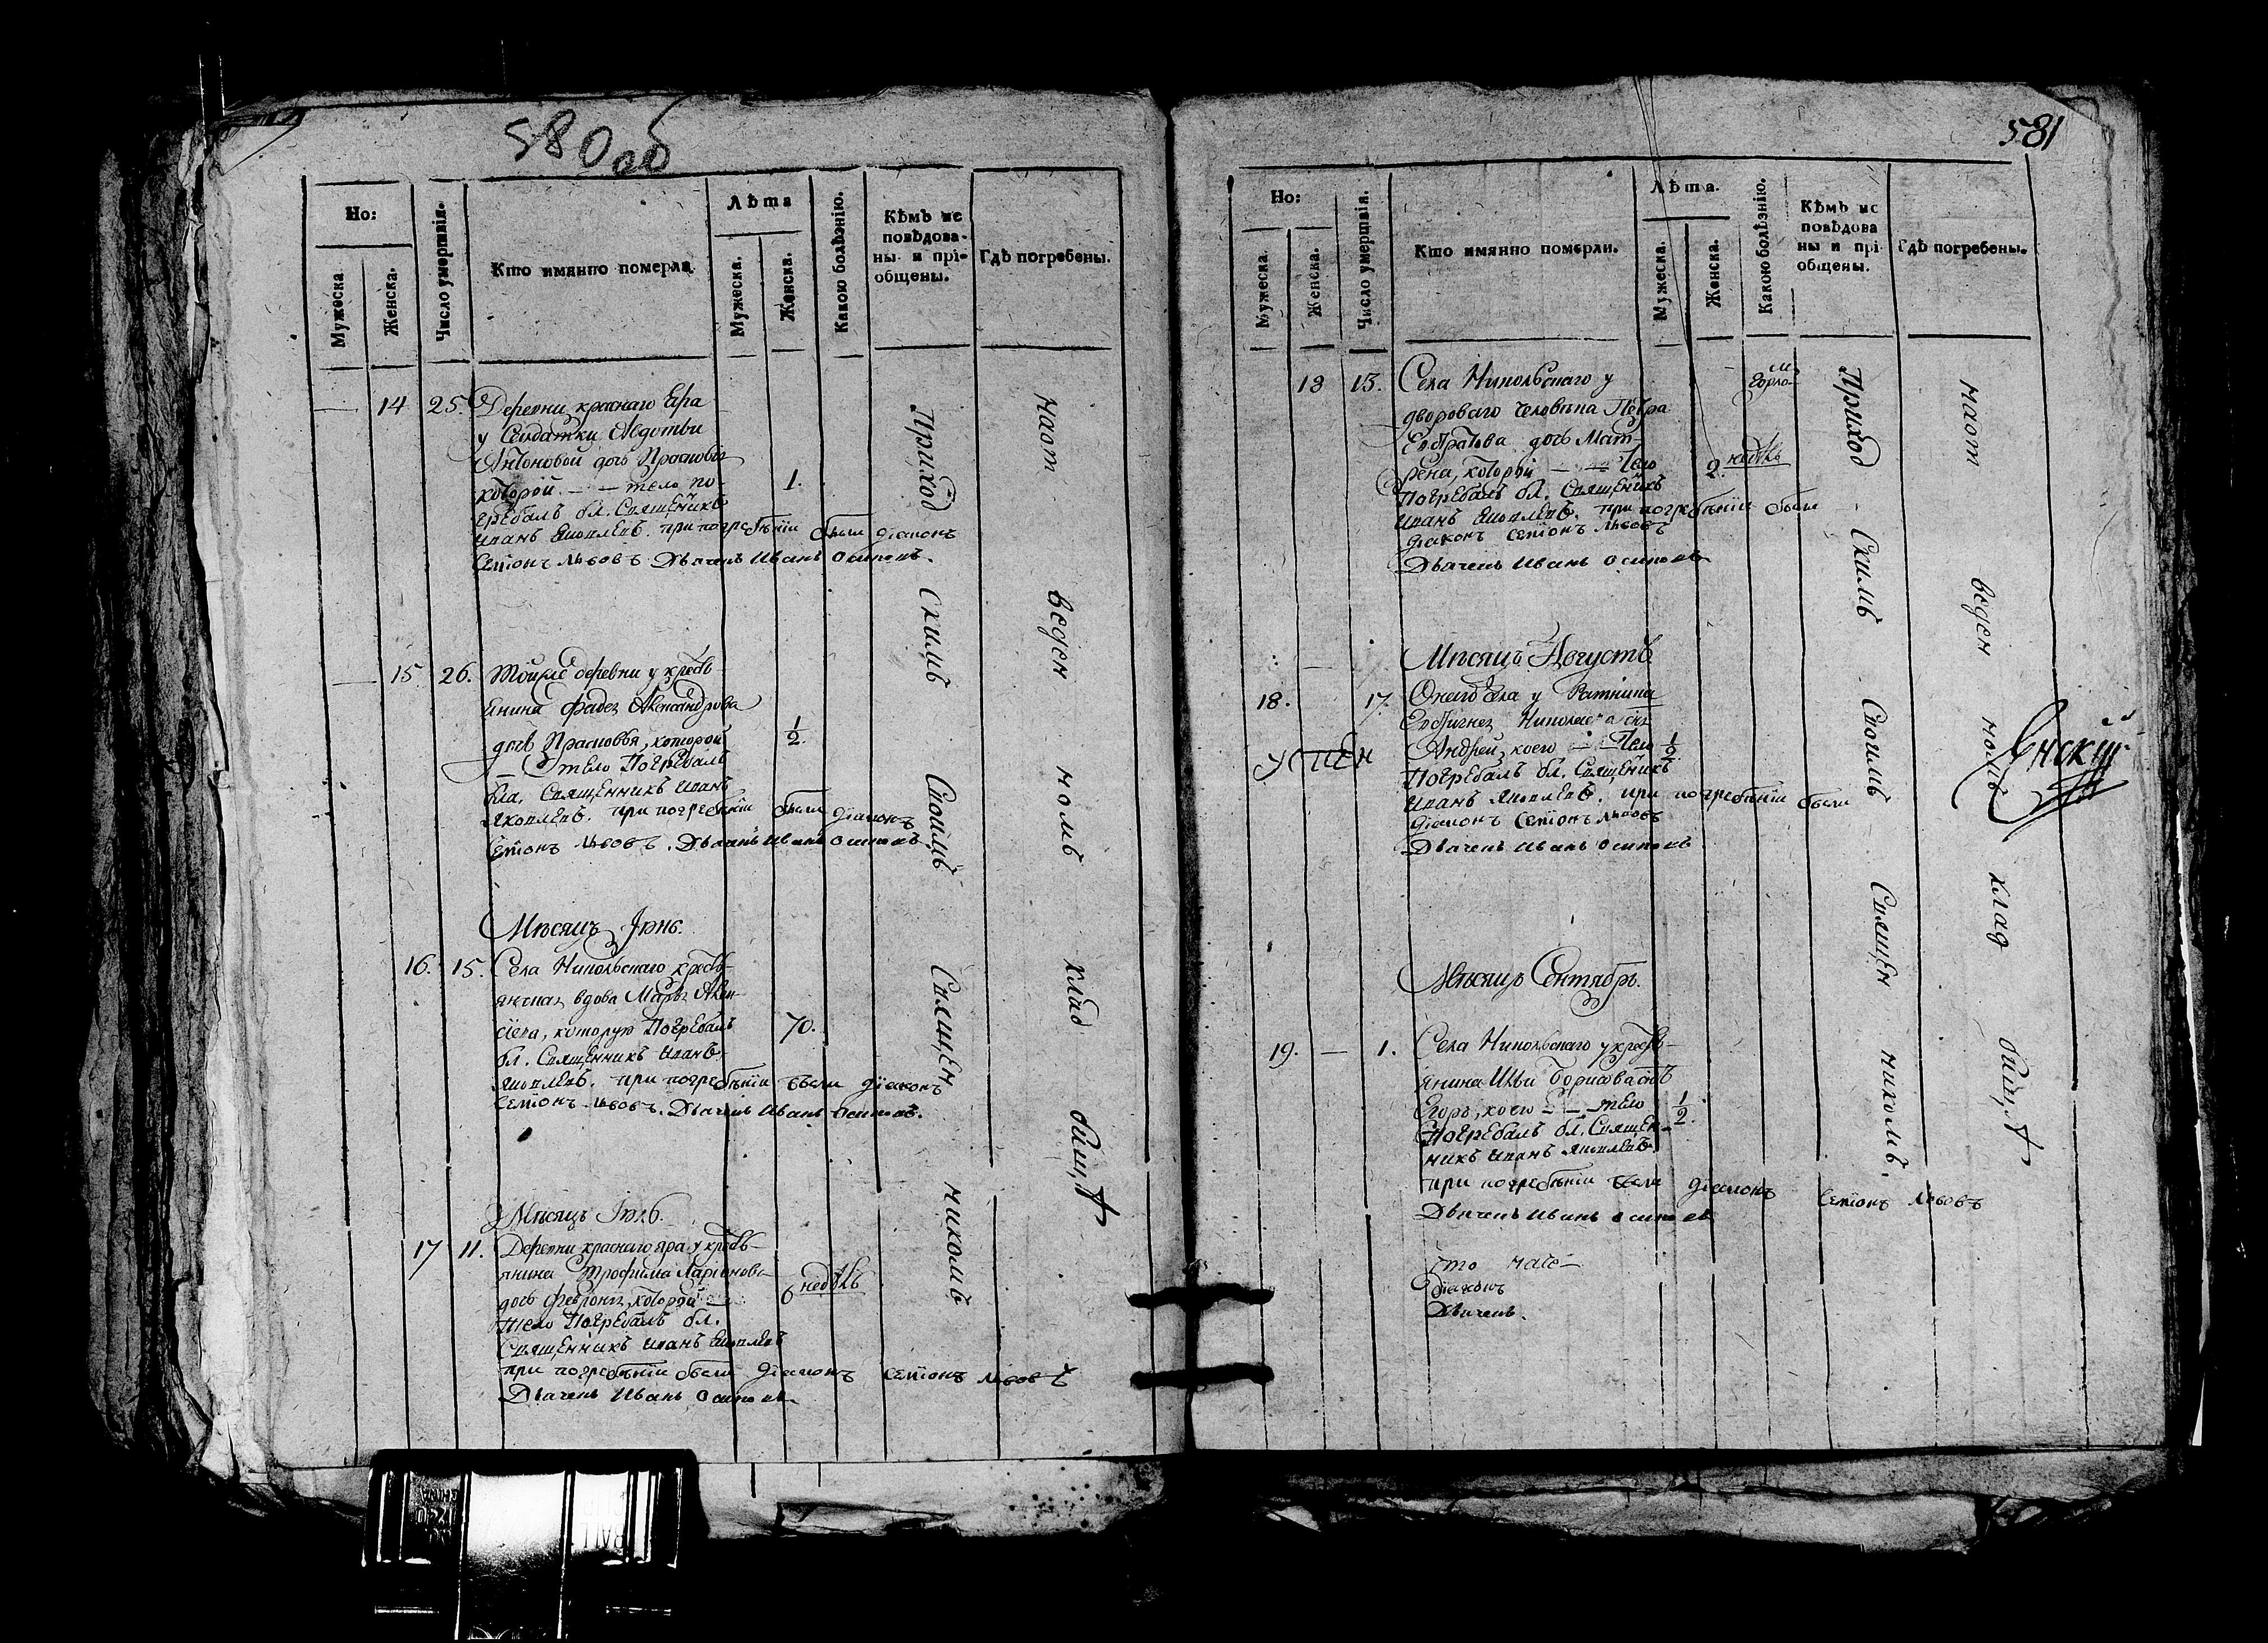 580 об
Но:
Мужеска
Женска.
Число умершвія.
Кто имянно померли.
Лѣта
Мужеска.
Женска.
Какою болѣзнію.
Кѣмъ ис
повѣдова-
ны и прі-
общены.
Гдѣ погребены.
14 25. Деревни краснаго Яра
у Солдатки Авдотьи
Антоновой дочь Прасковья
которой — — тело по- 1.
гребалъ бл. Священикъ
Иванъ Яковлевъ. при погребеніи были діаконъ
Семіонъ Львовъ. Дьячекъ Иванъ Осиповъ.
15 26. Тойже деревни у крестъ-
янина Фадея Александрова
дочь Прасковья, которой 1/2.
— тело Погребалъ
бла. Священникъ Иванъ
Яковлевъ. при погребеніи были діаконъ
Семіонъ Львовъ. Дьячекъ Иванъ Осиповъ.
Мѣсяцъ Іюнь.
16. 15. Села Никольскаго кресть-
янская вдова Марья
которую Погребалъ 70.
бл. Священникъ Иванъ
Яковлевъ. при погребеніи были діаконъ
Семіонъ Львовъ. Дьячекъ Иванъ Осиповъ.
Мѣсяцъ Іюль.
17 11. Деревни краснаго яра у кресть-
янина Трофима Ларіонова
дочь которой — 6 недѣль
тело Погребалъ бл.
Священникъ Иванъ Яковлевъ
при погребеніи были діаконъ Семіонъ Львовъ
Дьячекъ Иванъ Осиповъ
Приход Скимъ Своимъ Священ никомъ
наот веден номъ клад бищѣ
581
Но:
Мужеска.
Женска.
Число умершвія.
Кто имянно померли.
Лѣта.
Мужеска.
Женска.
Какою болѣзнію.
Кѣмъ ис
повѣдова
ны и прі-
общены.
Гдѣ погребены.
18 13. Села Никольскаго у
двороваго человека Петра
дочь Мат-
рена, которой — — тело 2 недѣль
Погребалъ бл. Священикъ
Иванъ Яковлевъ. при погребеніи были
діаконъ Семіонъ Львовъ
Дьячекъ Иванъ Осиповъ
Мѣсяцъ Августъ
18. 17. Онаго села у
Николаева сынъ
Андрей, коего — тело 1/2
Погребалъ бл. Священикъ
Иванъ Яковлевъ. при погребеніи были
діаконъ Семіонъ Львовъ
Дьячекъ Иванъ Осиповъ
Мѣсяцъ Сентябрь.
19. — 1. Села Никольскаго у кресть-
янина Ильи Борисова сынъ
Егоръ, коего — — тело 1/2.
Погребалъ бл. Священ-
никъ Иванъ Яковлевъ.
при погребеніи были діаконъ Семіонъ Львовъ
Дьячекъ Иванъ Осиповъ
діаконъ
Дьячекъ.
Приход Скимъ Своимъ Священ никомъ.
наот веден номъ клад бищѣ